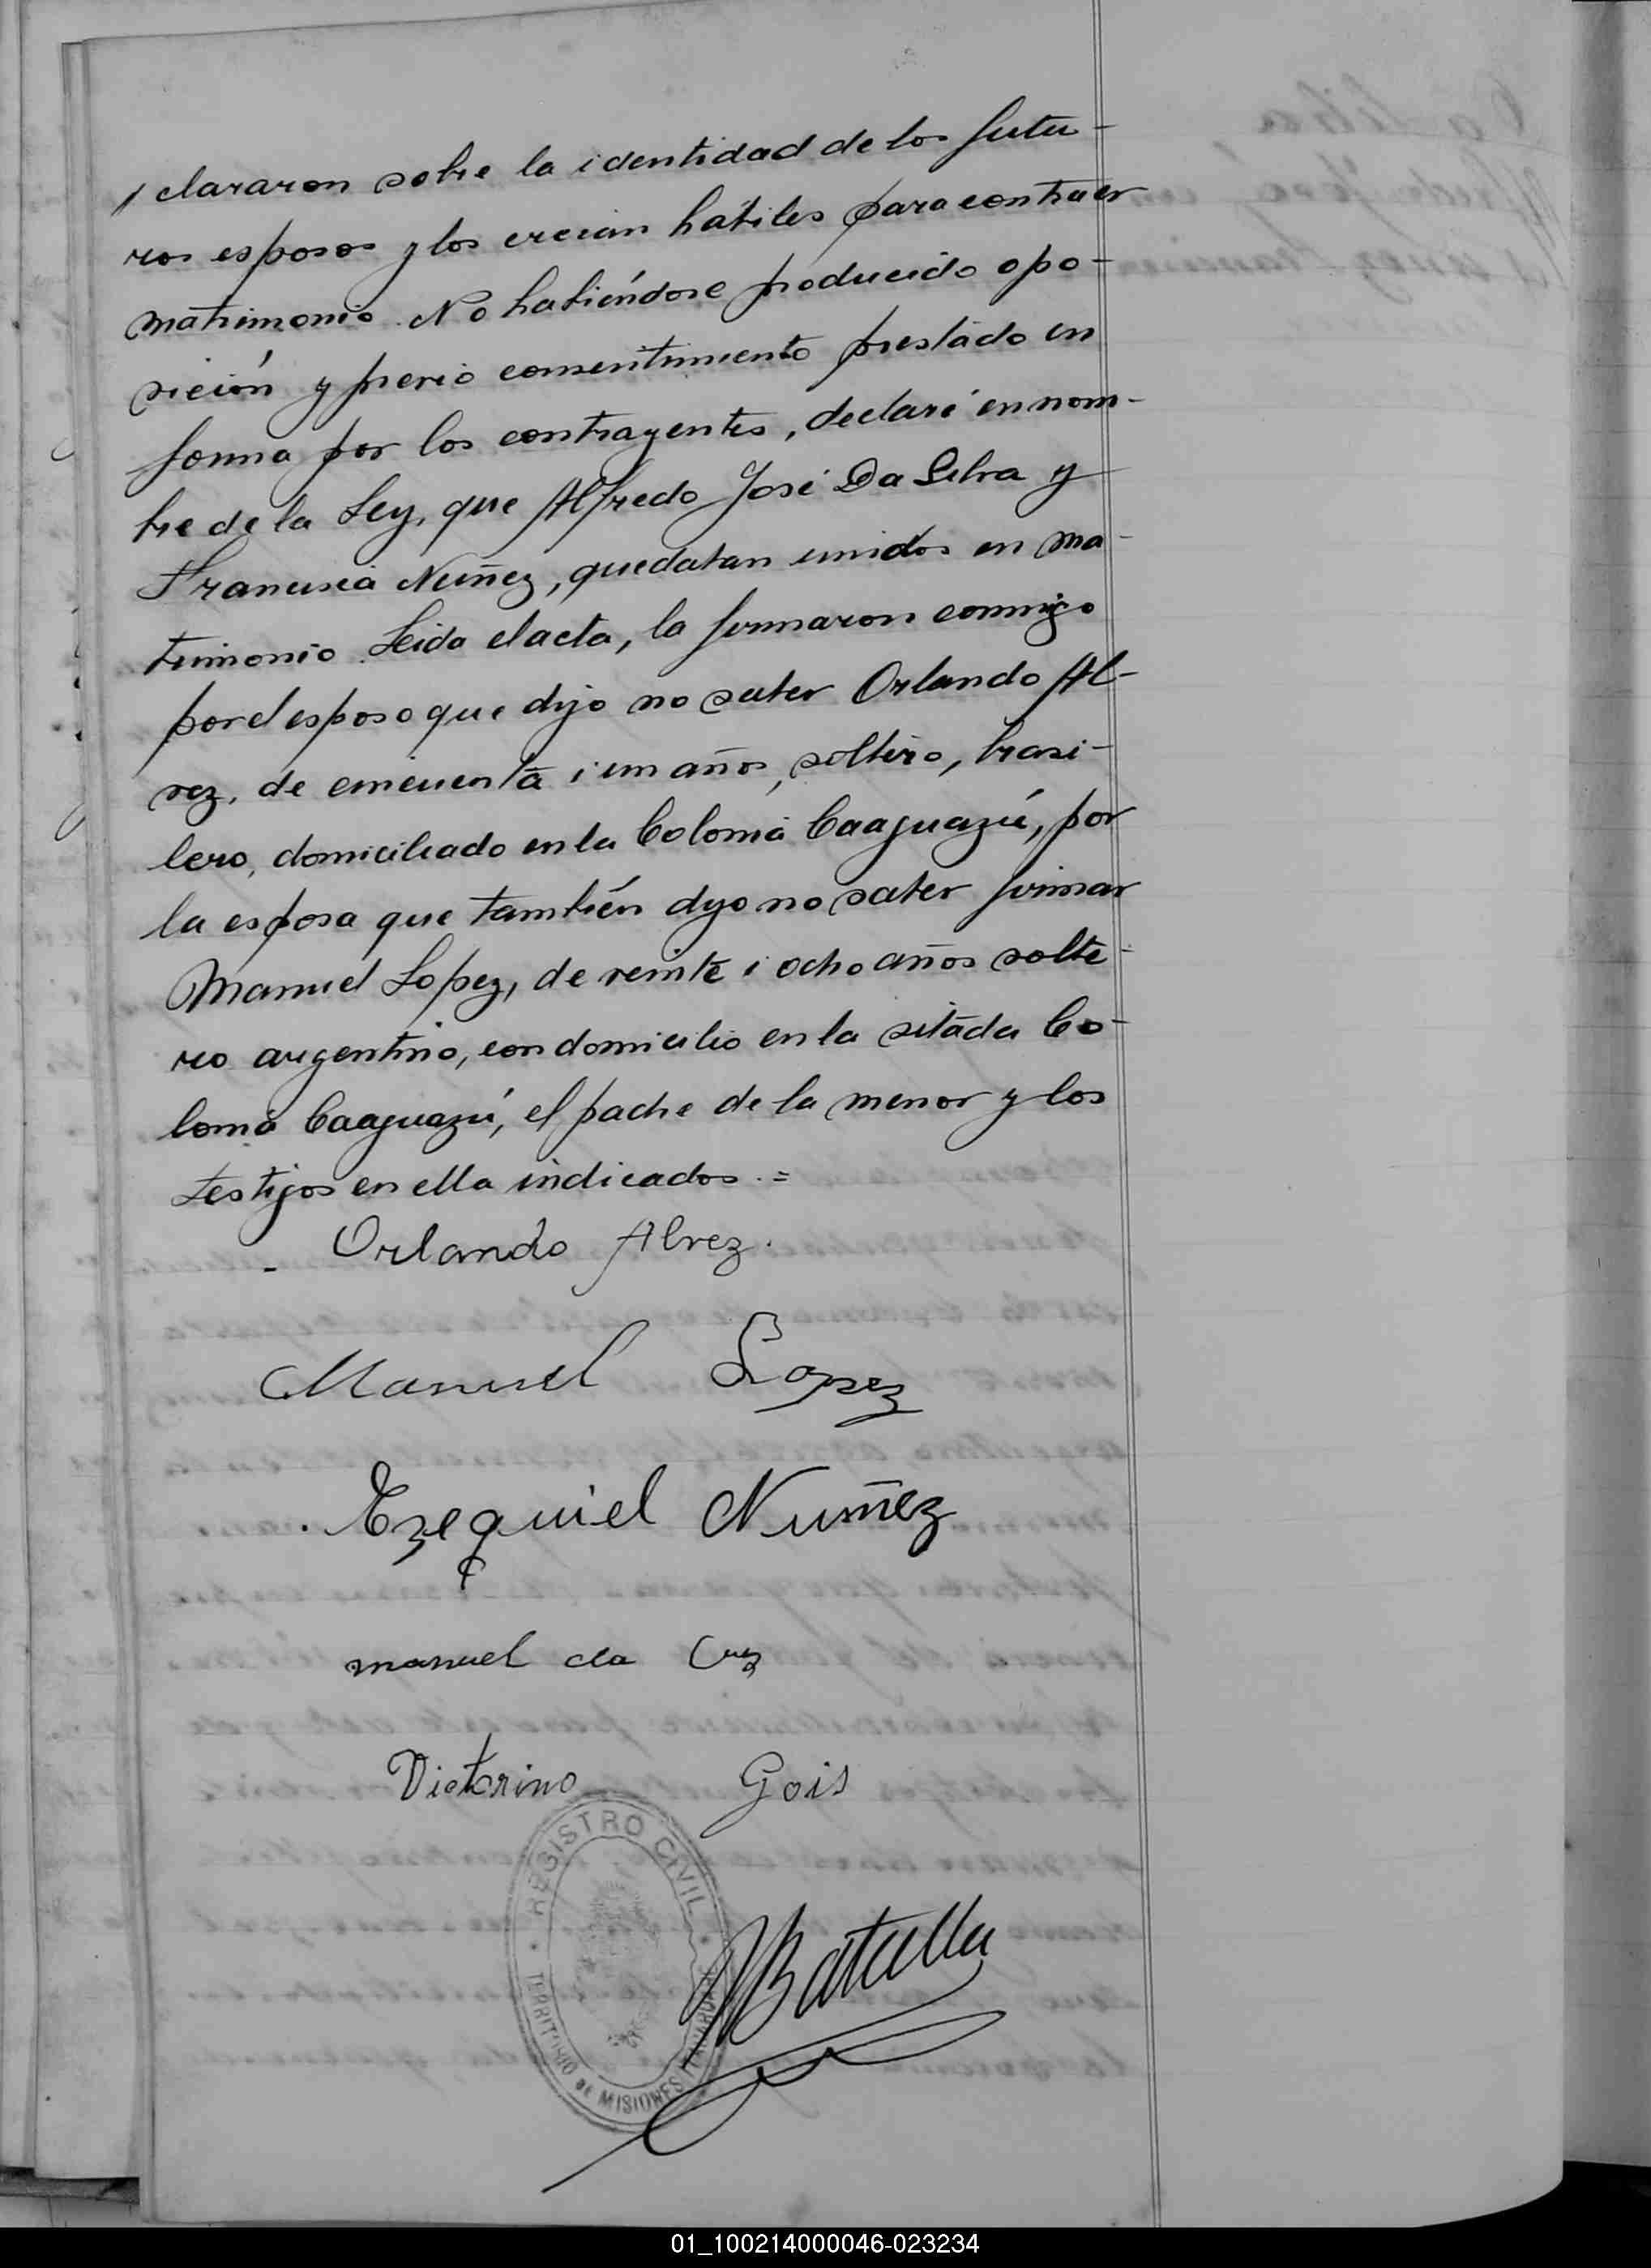 / clararon sobre la identidad de los futu-
ros esposos y los creían hábiles para contraer
matrimonio. No habiéndose producido opo-
sición y previo consentimiento prestado en
forma por los contrayentes, declaré en nom-
bre de la Ley, que Alfredo José Da Silva y
Francisca Nuñez, quedaban unidos en ma-
trimonio. Leida el acta, la firmaron conmigo
por el esposo que dijo no saber Orlando Al-
vez, de cincuenta i un años, soltero, brasi-
lero, domiciliado en la Colonia Caaguazú, por
la esposa que también dijo no saber firmar
Manuel Lopez, de veinte i ocho años solte-
ro argentino, con domicilio en la sitada Co-
lonia Caaguazú, el padre de la menor y los
testigos en ella indicados. =
Orlando Alvez.
Manuel Lopez
Ezequiel Nuñez
manuel da Cruz
Victorino Gois
REGISTRO CIVIL
TERRITORIO DE MISIONES
Batalla
01_100214000046-023234